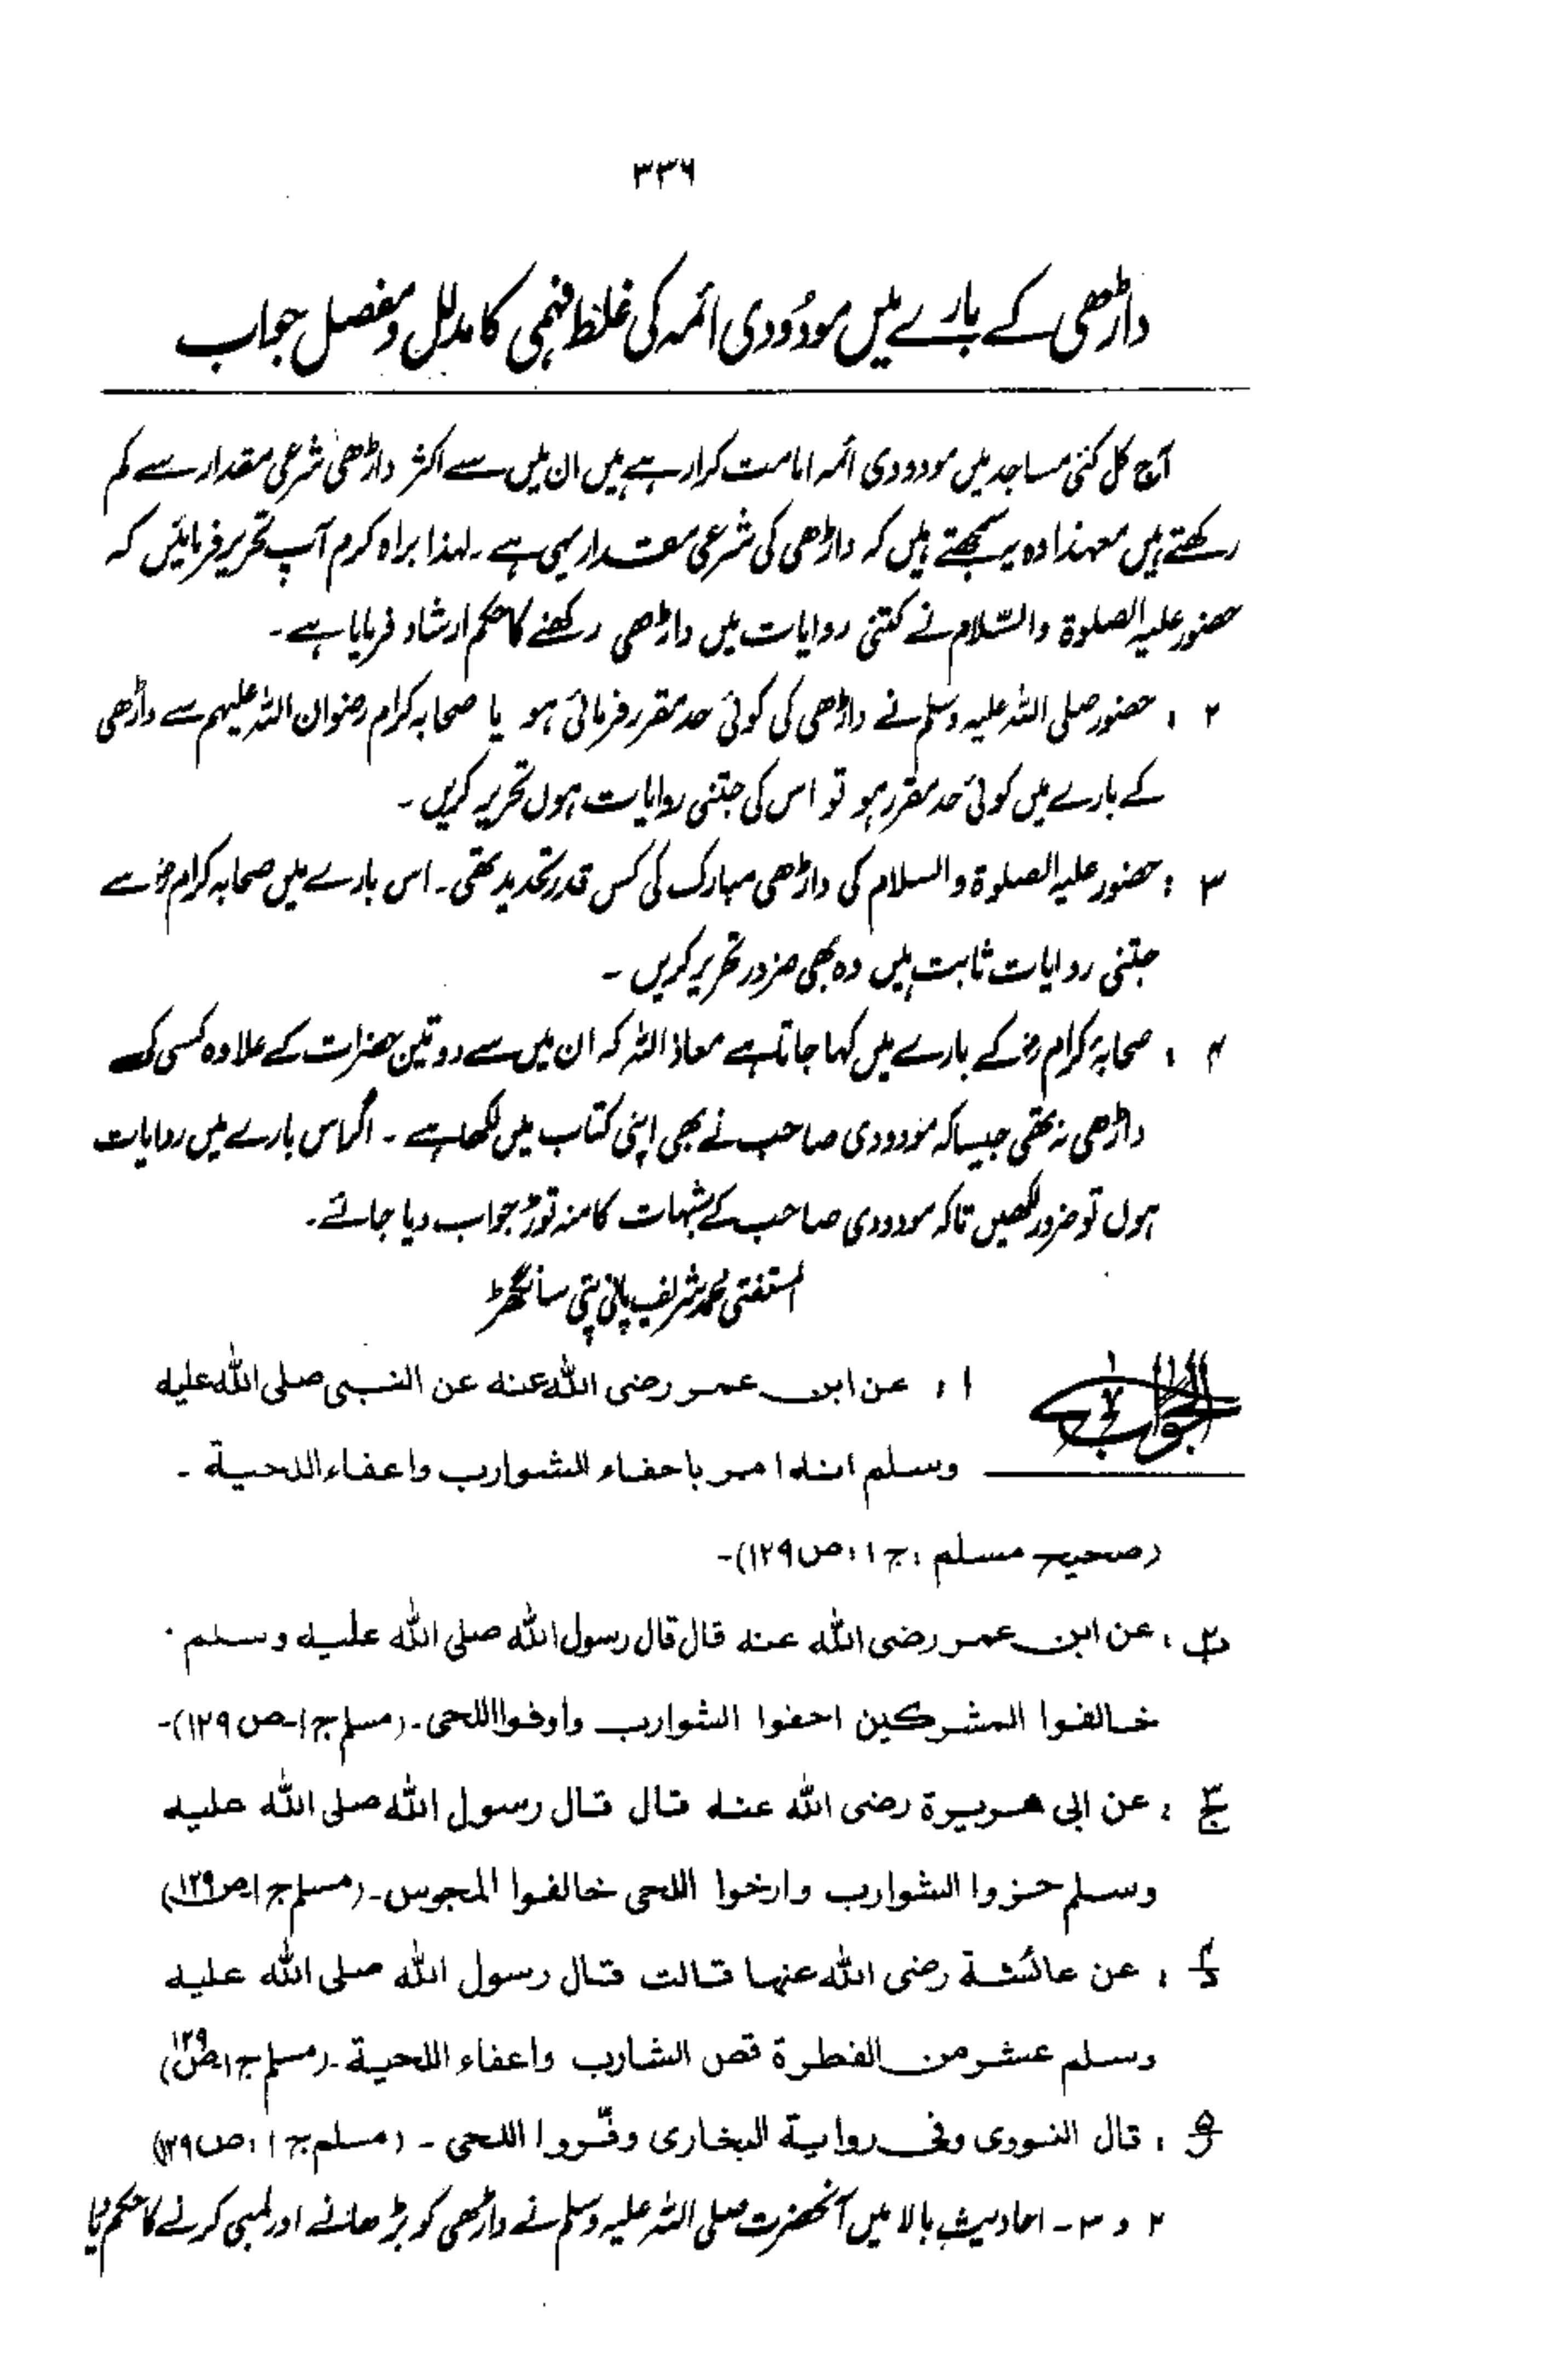 ۳۳۶
داڑھی کے بارے میں مودُودی ائمہ کی غلط فہمی کا مدلل و مفصل جواب
آج کل کئی مساجد میں مودودی ائمہ امامت کرا رہے ہیں ان میں سے اکثر داڑھی شرعی مقدار سے کم
رکھتے ہیں معہذا وہ یہ سمجھتے ہیں کہ داڑھی کی شرعی مقدار یہی ہے ۔ لہذا براہ کرم آپ تحریر فرمائیں کہ
حضور علیہ الصلوۃ والسّلام نے کتنی روایات میں داڑھی رکھنے کا حکم ارشاد فرمایا ہے ۔
۲ : حضور صلی اللہ علیہ وسلم نے داڑھی کی کوئی حد مقرر فرمائی ہو یا صحابہ کرام رضوان اللہ علیہم سے داڑھی
کے بارے میں کوئی حد مقرر ہو تو اس کی جتنی روایات ہوں تحریر کریں ۔
۳ : حضور علیہ الصلوۃ والسلام کی داڑھی مبارک کی کس قدر تحدید تھی ۔ اس بارے میں صحابہ کرام رضؓ سے
جتنی روایات ثابت ہیں وہ بھی ضرور تحریر کریں ۔
۴ : صحابہ کرام رضؓ کے بارے میں کہا جاتا ہے معاذ اللہ کہ ان میں سے دو تین حضرات کے علاوہ کسی کی
داڑھی نہ تھی جیسا کہ مودودی صاحب نے بھی اپنی کتاب میں لکھا ہے ۔ اگر اس بارے میں روایات
ہوں تو ضرور لکھیں تاکہ مودودی صاحب کے شبہات کا منہ توڑ جواب دیا جائے ۔
المستفتی محمد شریف پانی پتی سانگھڑ
الجواب ۱ : عن ابن عمر رضی اللہ عنہ عن النبی صلی اللہ علیہ
وسلم انہ امر باحفاء الشوارب واعفاء اللحیة ۔
(صحیح مسلم : ج ۱ : ص ۱۲۹)۔
ب : عن ابن عمر رضی اللہ عنہ قال قال رسول اللہ صلی اللہ علیہ وسلم ۰
خالفوا المشرکین احفوا الشوارب واوفوا اللحی ۔ (مسلم ج ۱ ۔ ص ۱۲۹)۔
ج : عن ابی ھریرة رضی اللہ عنہ قال قال رسول اللہ صلی اللہ علیہ
وسلم جزوا الشوارب وارخوا اللحی خالفوا المجوس ۔ (مسلم ج ۱ ص ۱۲۹)
د : عن عائشة رضی اللہ عنہا قالت قال رسول اللہ صلی اللہ علیہ
وسلم عشر من الفطرة قص الشارب واعفاء اللحیة ۔ (مسلم ج ۱ ص ۱۲۹)
ھ : قال النووی وفی روایة البخاری وفّروا اللحی ۔ (مسلم ج ۱ : ص ۱۲۹)
۲ و ۳ ۔ احادیث بالا میں آنحضرت صلی اللہ علیہ وسلم نے داڑھی کو بڑھانے اور لمبی کرنے کا حکم